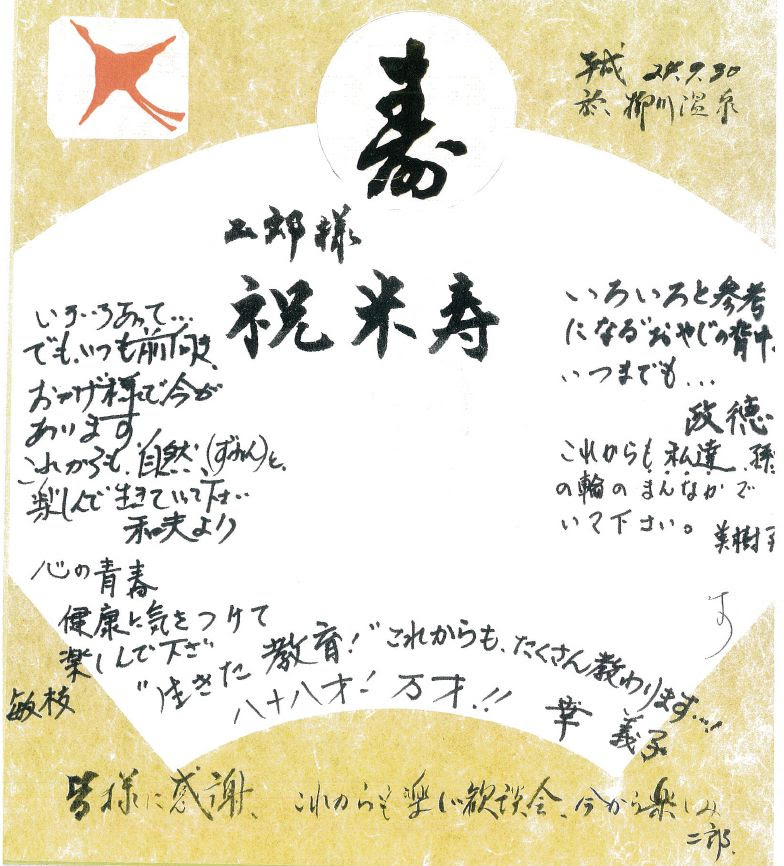 寿
平成 24.9.30
於、柳川温泉
二郎様
祝米寿
いろいろあって…
でも、いつも前向き、
おかげ様で、今が
あります
これからも、自然(ずみん)と、
楽しんで生きていって下さい
和夫より
いろいろと参考
になる"おやじの背中、
いつまでも…
政徳
これからも私達、孫
の輪のまんなかで
いて下さい。
美樹
心の青春
健康に気をつけて
楽しんで下さい
敏枝
"生きた教育!"これからも、たくさん教わります…!
八十八才! 万才!!
幸 義子
皆様に感謝、これからも楽しい歓談会、今から楽しみ
二郎